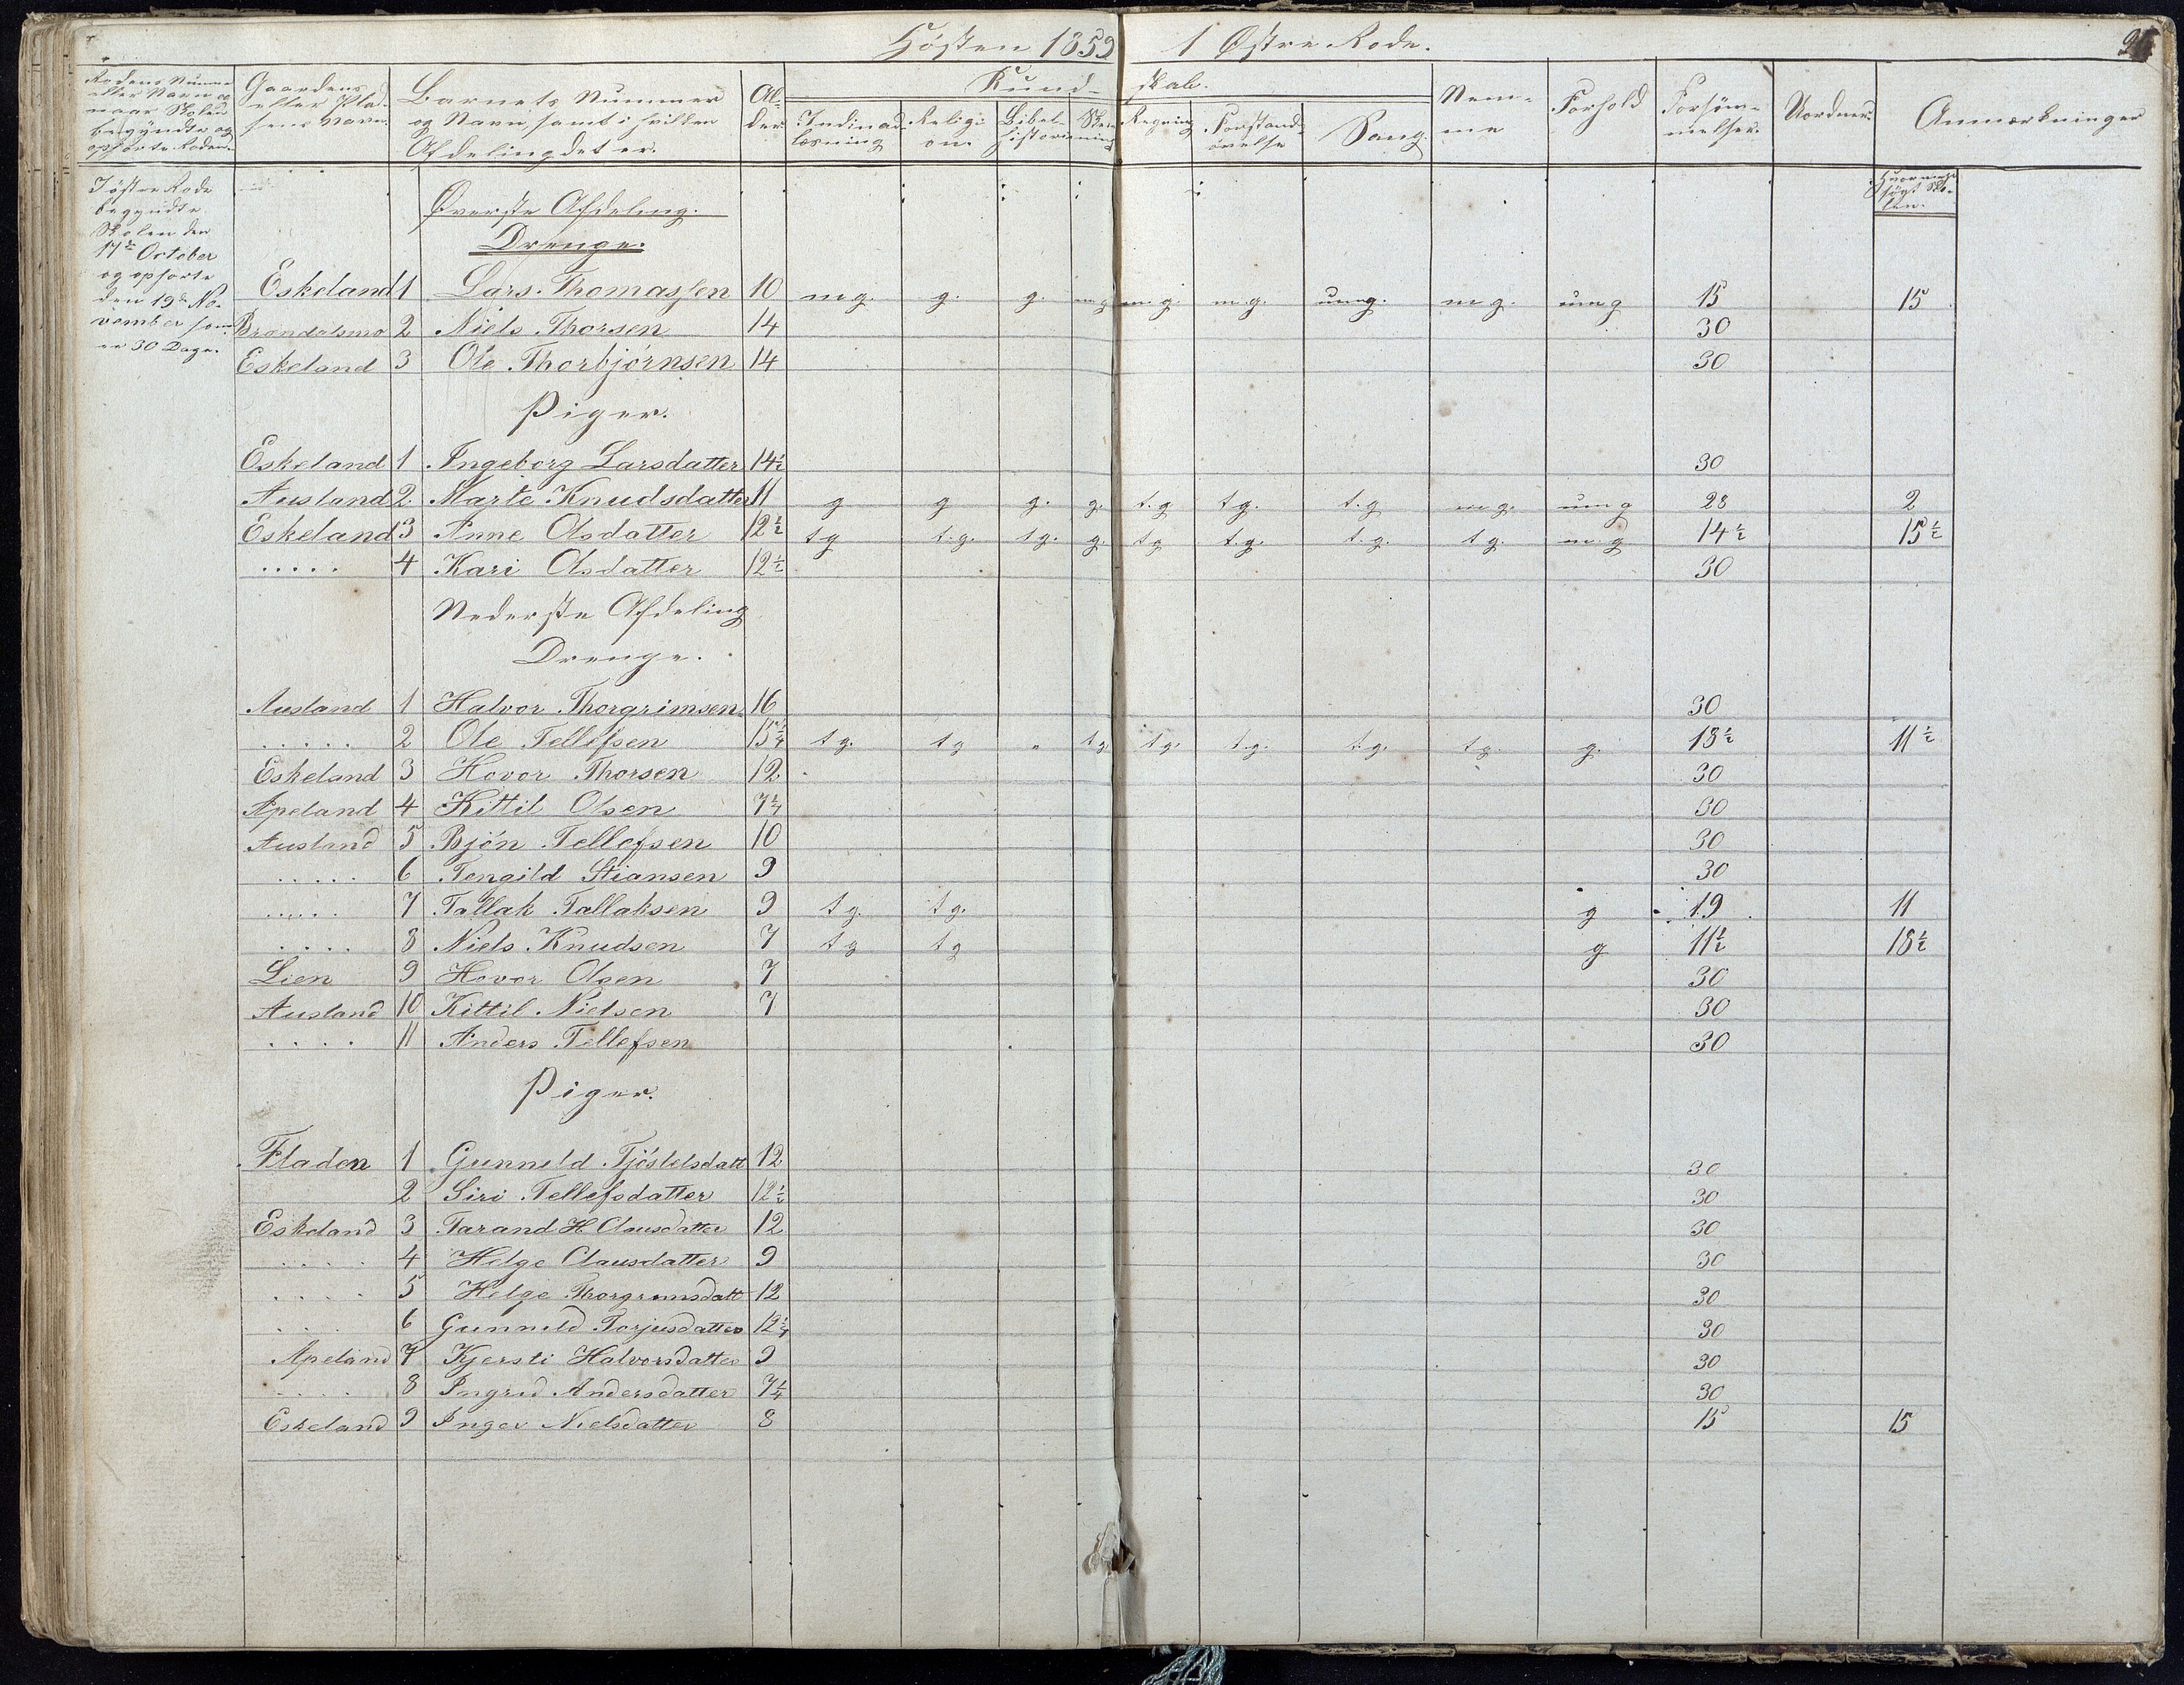 Hösten 1859 1 Østre Rode.
Rodens Nummer eller Navn og naar Skolen begyndte og ophørte Roden.
Gaardens eller Pladsens Navn.
Barnets Nummer og Navn, samt i hvilken Afdeling det er.
Alder
Kundskab.
Indinadlæsning
Religion.
Bibelhistorie
Skrivning
Regning
Forstandsøvelse
Sang.
Nemme
Forhold
Forsømmelser.
Uordner.
Anmærkninger
søgt Skolen.
I østre Rode
begyndte
Skolen den
17de October
og ophørte
den 19de No-
vember som
er 30 Dage.
Øverste Afdeling.
Drenge.
Eskeland 1 Lars Thomassen 10 m.g. g. g. m.g. m.g. m.g. umg. m.g. umg 15 15
Brændalsmo 2 Niels Thorsen 14 30
Eskeland 3 Ole Thorbjörnsen 14 30
Piger.
Eskeland 1 Ingeborg Larsdatter 14½ 30
Ausland 2. Marte Knudsdatter 11 g g g. g. t.g tg. t.g m.g. umg 28 2
Eskeland 3 Anne Olsdatter 12½ tg t.g. tg. g. tg t.g. t.g. tg. m.g 14½ 15½
..... 4 Kari Olsdatter 12½ 30
Nederste Afdeling
Drenge.
Ausland 1 Halvor Thorgrimsen 16 30
..... 2 Ole Tellefsen 15¼ tg. tg „ tg tg. t.g. t.g. tg. g. 18½ 11½
Eskeland 3 Hovor Thorsen 12 30
Apeland 4 Kittil Olsen 7¼ 30
Ausland 5 Bjön Tellefsen 10 30
..... 6 Tengild Stiansen 9 30
..... 7 Tallak Tallaksen 9 tg. tg. g 19 11
.... 8 Niels Knudsen 7 tg tg g 11½ 18½
Lien 9 Hovor Olsen 7 30
Ausland 10 Kittil Nielsen 7 30
.... 11 Anders Tellefsen 30
Piger.
Fladen 1 Gunneld Tjöstelsdatt 12 30
2 Siri Tellefsdatter 12½ 30
Eskeland 3 Tarand H Clausdatter 12 30
.... 4 Helge Clausdatter 9 30
.... 5 Helge Thorgrimsdatt 12 30
... 6 Gunneld Torjusdatter 12¼ 30
Apeland 7 Kjersti Halvorsdatter 9 30
.... 8 Ingrid Andersdatter 7¼ 30
Eskeland 9 Inger Nielsdatter 8 15 15